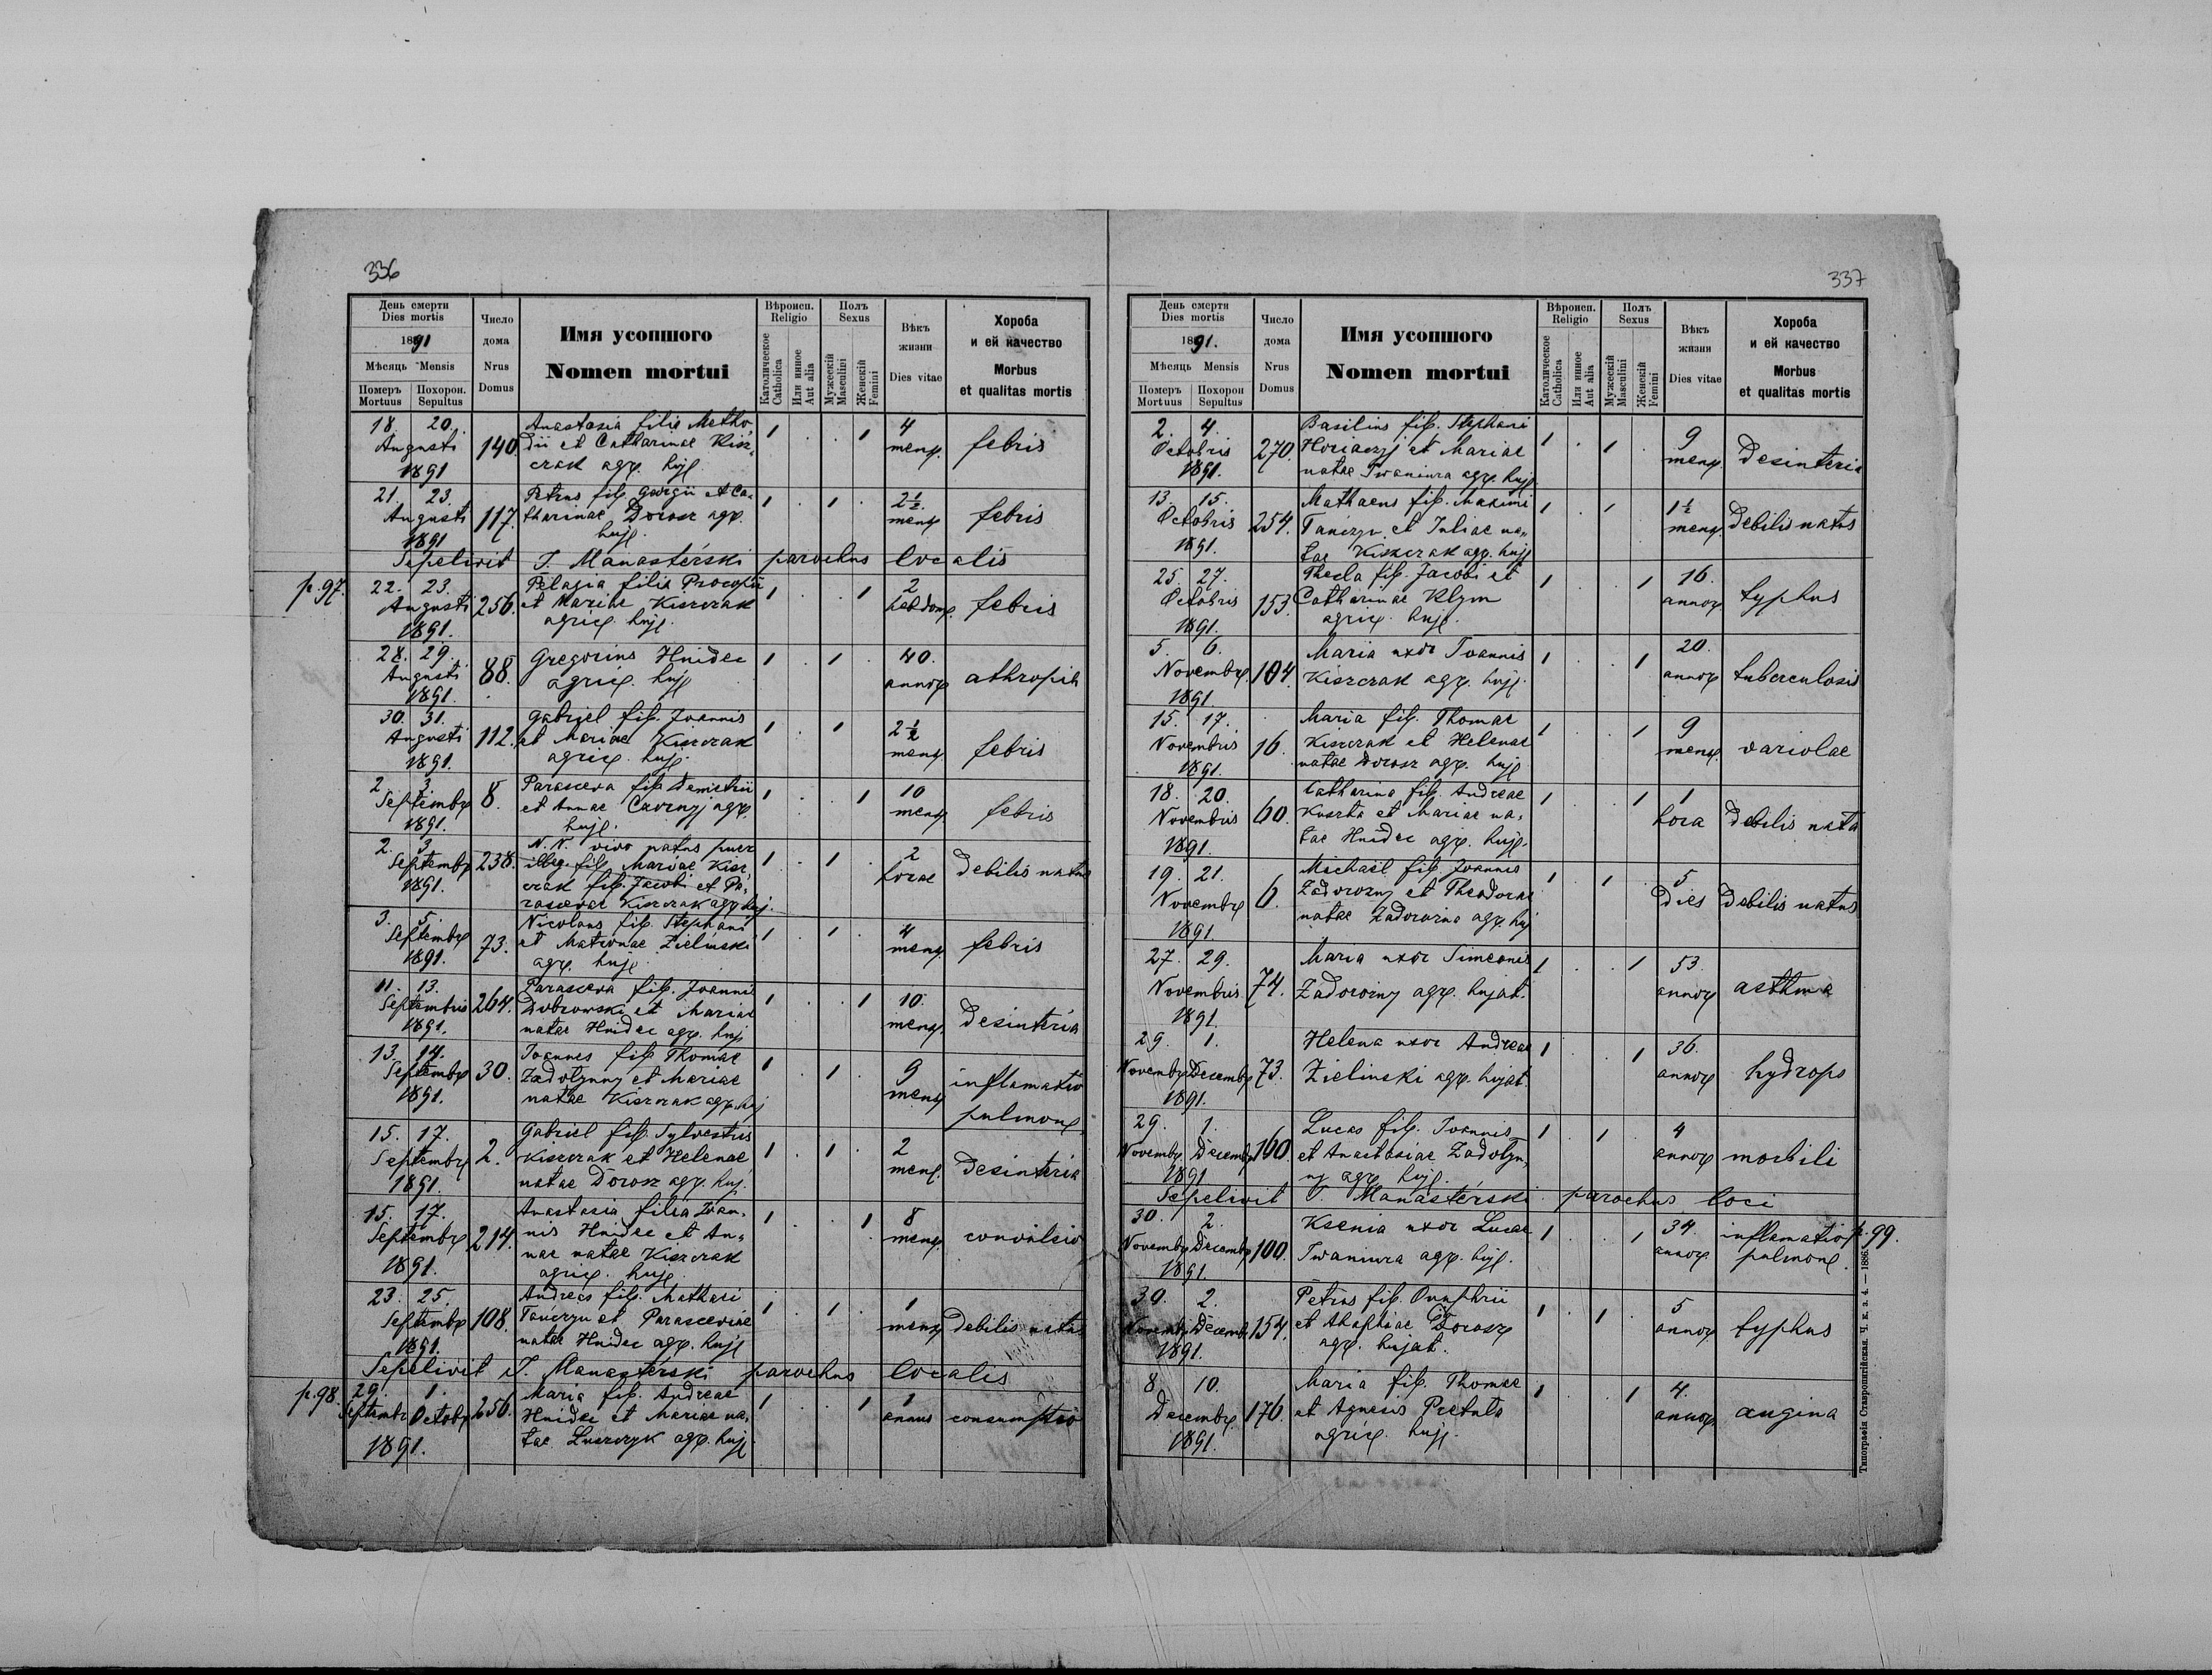 336
День смерти
Dies mortis
1891
Мѣсяць Mensis
Померъ Похорон.
Mortuus Sepultus
Число
дома
Nrus
Domus
Имя усопшого
Nomen mortui
Вѣроисп.
Religio
Католическое
Catholica
Или инное
Aut alia
Полъ
Sexus
Мужескій
Masculini
Женскій
Femini
Вѣкъ
жизни
Dies vitae
Хороба
и ей качество
Morbus
et qualitas mortis
18. 20. Augusti 1891
140.
Anastasia filia Metho-
dii et Catharinae Kisz-
czak agr. huj.
1 . . 1
4 mens.
febris
21. 23. Augusti 1891
117.
Petrus fil. Georgii et Ca-
tharinae Dorosz agr.
huj.
1 . 1 .
2½ mens
febris
Sepelivit J. Manasterski parochus localis
p. 97.
22. 23. Augusti 1891.
256.
Pelagia filia Procopii
et Mariae Kiszczak
agric. huj.
1 . . 1
2 hebdom.
febris
28. 29. Augusti 1891.
88.
Gregorius Hnidec
agric. huj
1 . 1 .
40. annor
athropia
30. 31. Augusti 1891.
112.
Gabriel fil. Joannis
et Mariae Kiszczak
agric. huj.
1 . 1
2½ mens
febris
2. 3. Septembr 1891.
8.
Parasceva fil. Demietrii
et Annae Czornyj agr.
huj.
1 . . 1
10 mens
febris
2. 3. Septembr 1891.
238.
N. N. vivo natus puer
illeg. fil. Mariae Kisz-
czak fil. Jacobi et Pa-
rascevae Kiszczak agr. huj.
1 . 1 .
2 horae
debilis natus
3. 5. Septembr 1891.
73.
Nicolaus fil. Stephani
et Matronae Zieliński
agr. huj.
1 . 1 .
4 mens.
febris
11. 13. Septembris 1891.
264.
Parasceva fil. Joannis
Dobrowski et Mariae
natae Hnidec agr. huj
1 . . 1
10. mens.
desinteria
13. 14. Septembr 1891.
30.
Joannes fil. Thomae
Zadolynny et Mariae
natae Kiszczak agr. huj
1 . 1 .
9 mens
inflamatio
pulmon.
15. 17. Septembr 1891.
2.
Gabriel fil. Sylvestris
Kiszczak et Helenae
natae Dorosz agr. huj.
1 . 1 .
2 mens.
desinteria
15. 17. Septembr 1891.
214.
Anastasia filia Joan-
nis Hnidec et An-
nae natae Kiszczak
agric. huj.
1 . . 1
8 mens.
convulsio
23. 25. Septembr 1891.
108.
Andreas fil. Mathaei
Tanczyn et Parasceviae
natae Hnidec agr. huj
1 . 1 .
1 mens
debilis natus
Sepelivit J. Manasterski parochus localis
p. 98.
29. 1. Septembr Octobr 1891.
256.
Maria fil. Andreae
Hnidec et Mariae na-
tae Luszczyk agr. huj.
1 . . 1
1 annus
consumptio
337
День смерти
Dies mortis
1891.
Мѣсяць Mensis
Померъ Похорон
Mortuus Sepultus
Число
дома
Nrus
Domus
Имя усопшого
Nomen mortui
Вѣроисп.
Religio
Католическое
Catholica
Или инное
Aut alia
Полъ
Sexus
Мужескій
Masculini
Женскій
Femini
Вѣкъ
жизни
Dies vitae
Хороба
и ей качество
Morbus
et qualitas mortis
2. 4. Octobris 1891.
270.
Basilius fil. Stephani
Horiaczyj et Mariae
natae Iwaniura agr. huj
1 . 1
9 mens
desinteria
13. 15. Octobris 1891.
254.
Mathaeus fil. Maximi
Tanczyn et Juliae na-
tae Kiszczak agr. huj
1 . 1
1½ mens.
debilis natus
25. 27. Octobris 1891.
153.
Thecla fil. Jacobi et
Catharinae Klym
agric. huj.
1 . . 1
16. annor
typhus
5. 6. Novembr. 1891
104.
Maria uxor Joannis
Kiszczak agr. huj.
1 . . 1
20. annor
tuberculosis
15. 17. Novembris 1891.
16.
Maria fil. Thomae
Kiszczak et Helenae
natae Dorosz agr. huj
1 . . 1
9 mens.
variolae
18. 20. Novembris 1891.
60.
Catharina fil. Andreae
Kuszta et Mariae na-
tae Hnidec agr. huj.
1 . . 1
1 hora
debilis nata
19. 21. Novembr 1891.
6.
Michaël fil. Joannis
Zadorozny et Theodorae
natae Zadorozna agr. huj
1 . 1 .
5 dies
debilis natus
27. 29. Novembris 1891.
74.
Maria uxor Simeonis
Zadorozny agr. hujat.
1 . . 1
53. annor
asthma
29. 1. Novembr Decembr 1891.
73.
Helena uxor Andreae
Zielinski agr. hujat.
1 . . 1
36. annor
hydrops
29. 1. Novembr Decembr 1891
160.
Lucas fil. Joannis
et Anastasiae Zadolyn-
ny agr. huj.
1 . 1 .
4 annor
morbili
Sepelivit J. Manasterski parochus loci
30. 2. Novembr Decembr 1891.
100.
Ksenia uxor Lucae
Iwaniura agr. huj.
1 . . 1
34. annor
inflamatio
pulmon.
p. 99.
30. 2. Novembr Decembr 1891.
154.
Petrus fil. Onuphrii
et Ahaphiae Dorosz
agr. hujat.
1 . 1 .
5 annor
typhus
8. 10. Decembr 1891.
176.
Maria fil. Thomae
et Agnesis Pretuta
agric. huj.
1 . . 1
4. annor
angina
Типографія Ставропигійская. Ч. к. з. 4. — 1886.